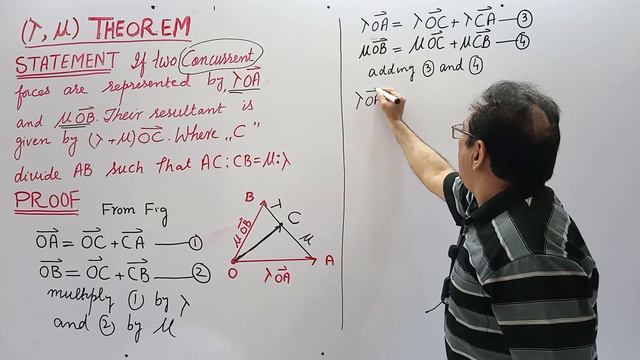 (λ, μ) THEOREM
STATEMENT If two Concurrent
forces are represented by λOA⃗
and μOB⃗. Their resultant is
given by (λ+μ)OC⃗. Where „C"
divide AB such that AC:CB=μ:λ
PROOF From Fig
OA⃗ = OC⃗ + CA⃗ —①
OB⃗ = OC⃗ + CB⃗ —②
multiply ① by λ
and ② by μ
B
λ
C
μOB⃗
μ
O
A
λOA⃗
λOA⃗ = λOC⃗ + λCA⃗ —③
μOB⃗ = μOC⃗ + μCB⃗ —④
adding ③ and ④
λOA⃗